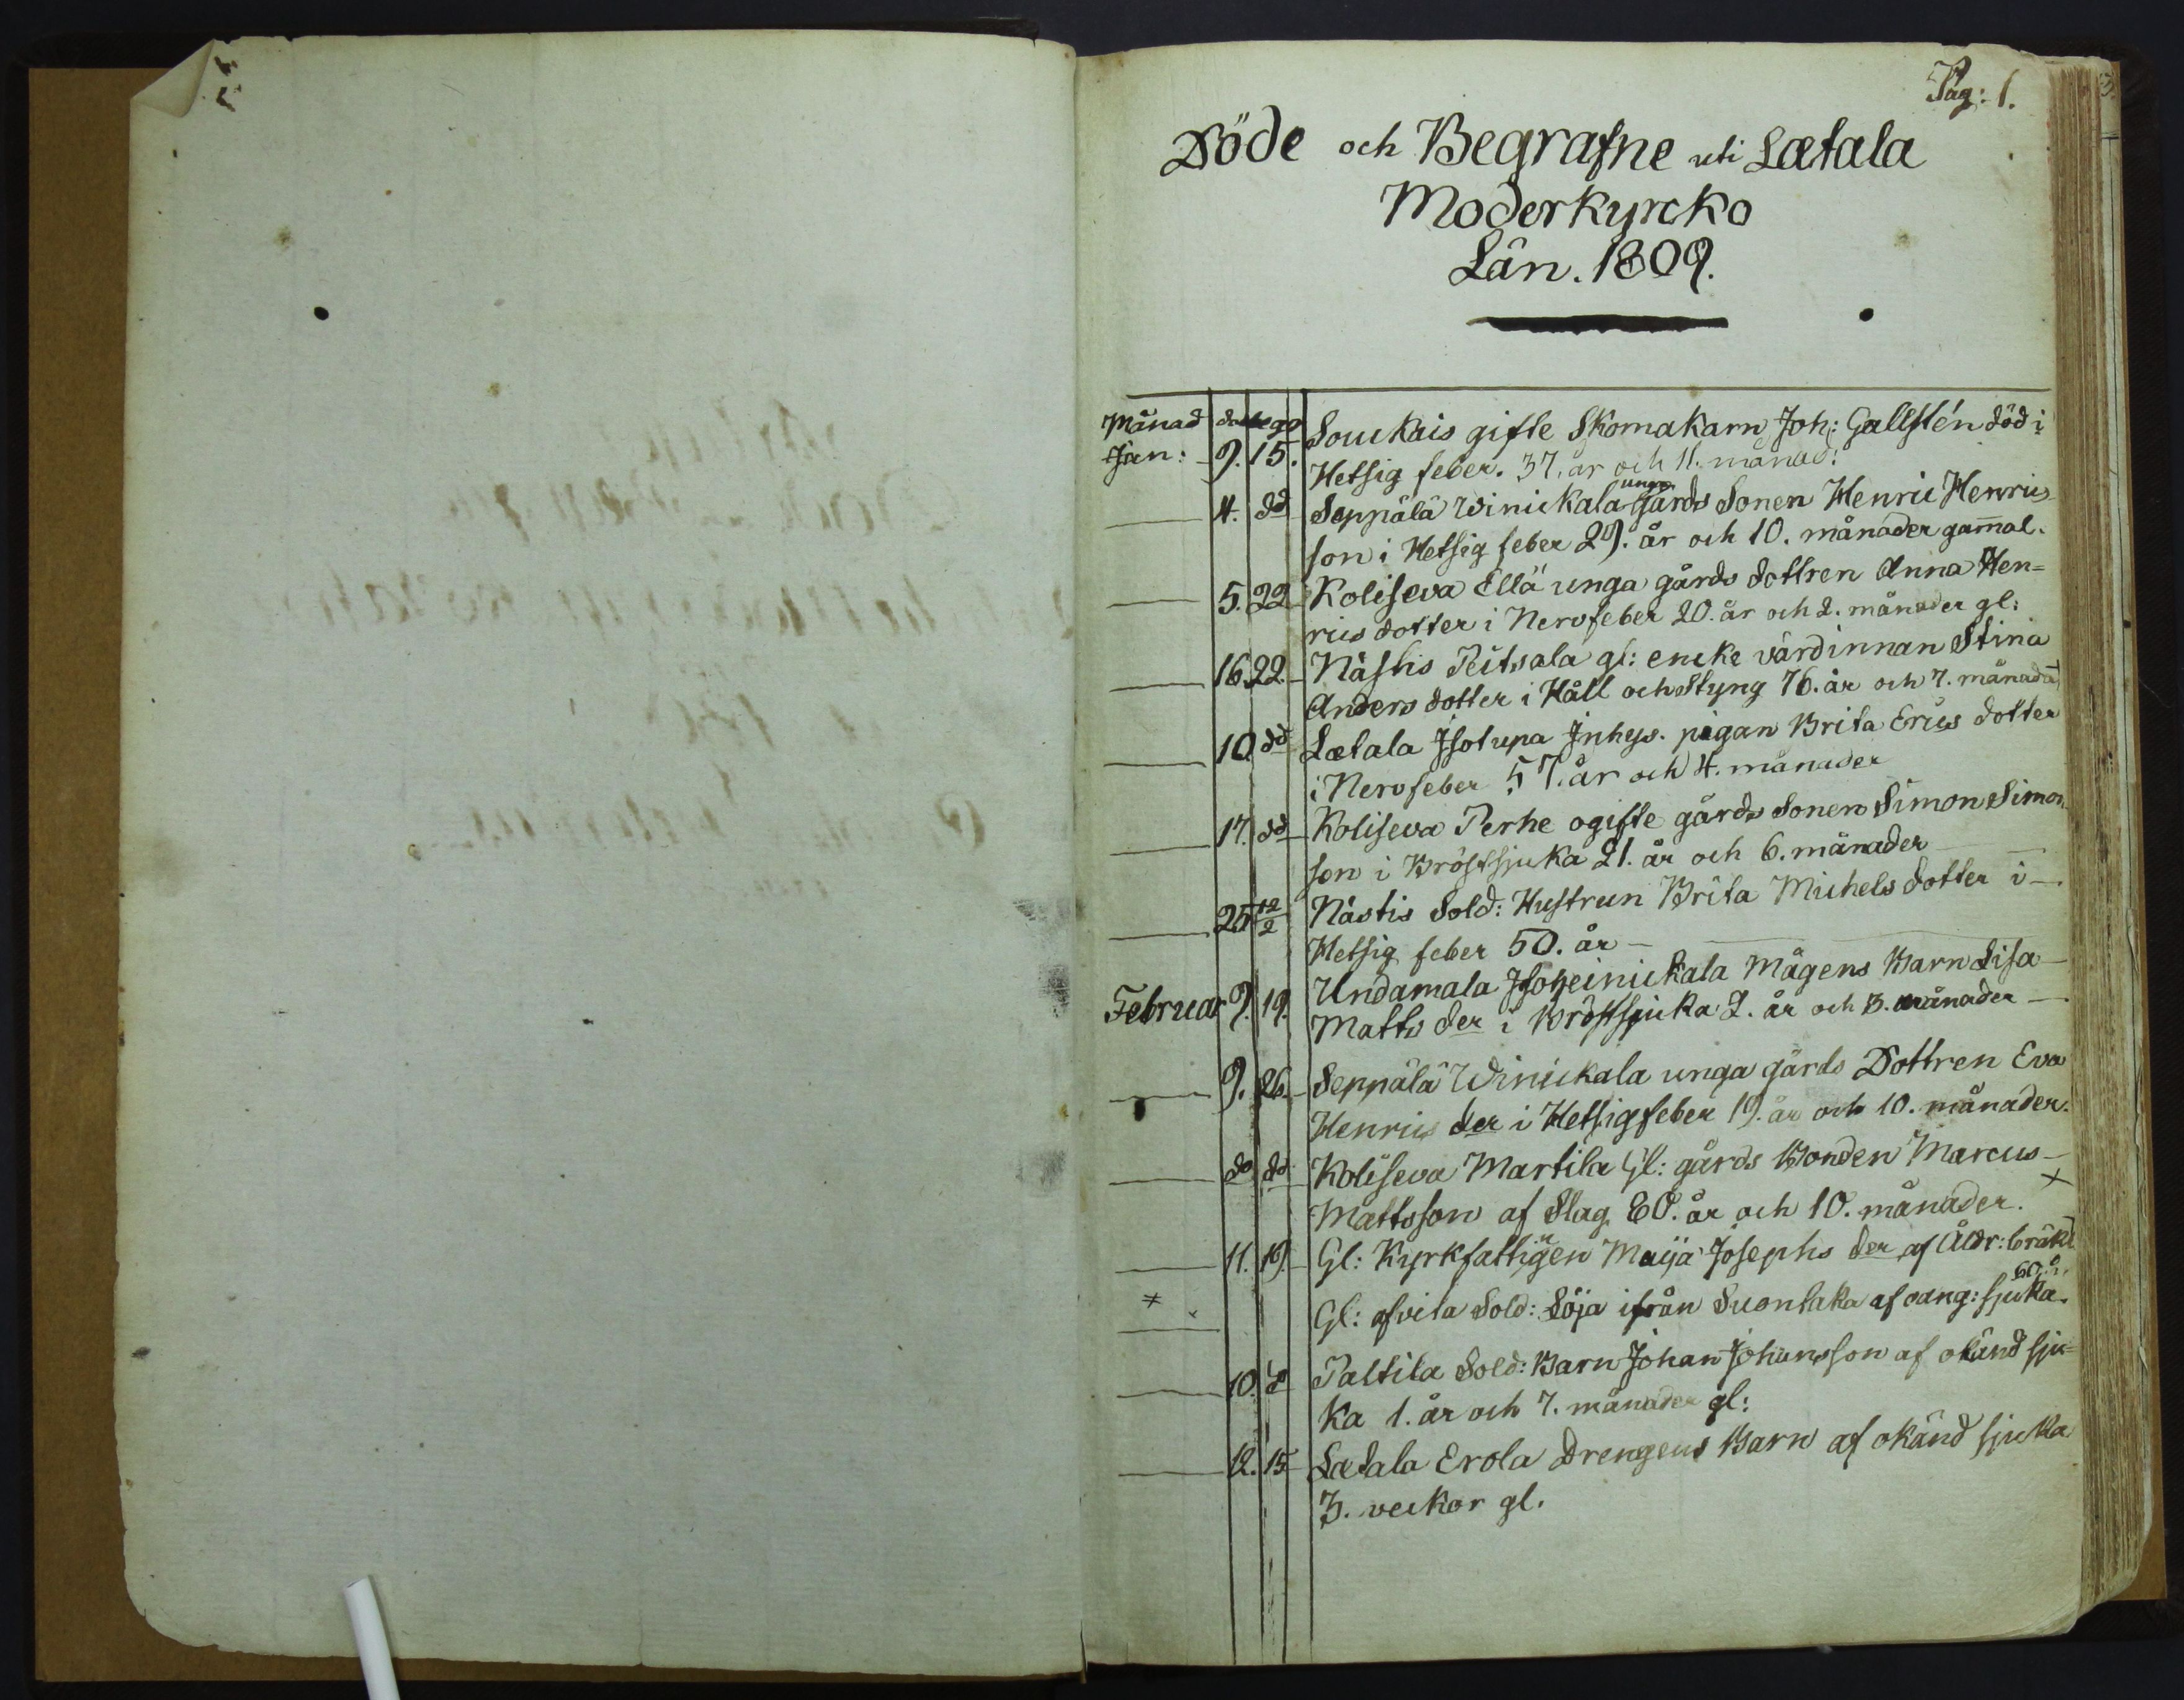 Pag: 1.
Döde och Begrafne uti Lætala
Moderkyrcko
Län. 1809.
Månad död begr
Jan: 9. 15. Souckais gifte Skomakarn Joh: Gallstén död i
Hetsig feber. 37. år och 11. månad:
4. do Seppälä Winickala unga gårds Sonen Henric Henrics
son i Hetsig feber 29. år och 10. månader gam̄al.
5. 22 Koliseva Ellä unga gårds dottren Anna Hen=
rics dotter i Nervfeber 20. år och 2. månader gl:
16. 22. Nästis Peitsala gl: encke värdinnan Stina
Anders dotter i Håll och Styng 76. år och 7. månader
10 do Lætala Isotupa Inhys. pigan Brita Erics dotter
i Nervfeber 57. år och 4. månader
17. do Koliseva Perhe ogifte gårds Sonen Simon Simon
son i Bröstsjuka 21. år och 6. månader
25 12/2 Nästis Sold: Hustrun Brita Michels dotter i
Hetsig feber 50. år
Februar 9. 19. Undamala Isoheinickala Mågens Barn Lisa
Matts der i Bröstsjuka 2. år och 3. månader
9. 26. Seppälä Winickala unga gårds Dottren Eva
Henrics der i Hetsigfeber 19. år och 10. månader.
do do Koliseva Martila Gl: gårds Bonden Marcus
Mattsson af Slag 60. år och 10. månader. ×
11. 19 Gl: Kyrkfattigen Maija Josephs der af Åldr: bräkl
≠ Gl: afvita Sold: Löja ifrån Suontaka af oang: sjuka. 60. år
10. do Paltila Sold: Barn Johan Johansson af okänd sju=
ka 1. år och 7. månader gl:
12. 15 Lætala Erola Drengens Barn af okänd sjuka
3. veckor gl.